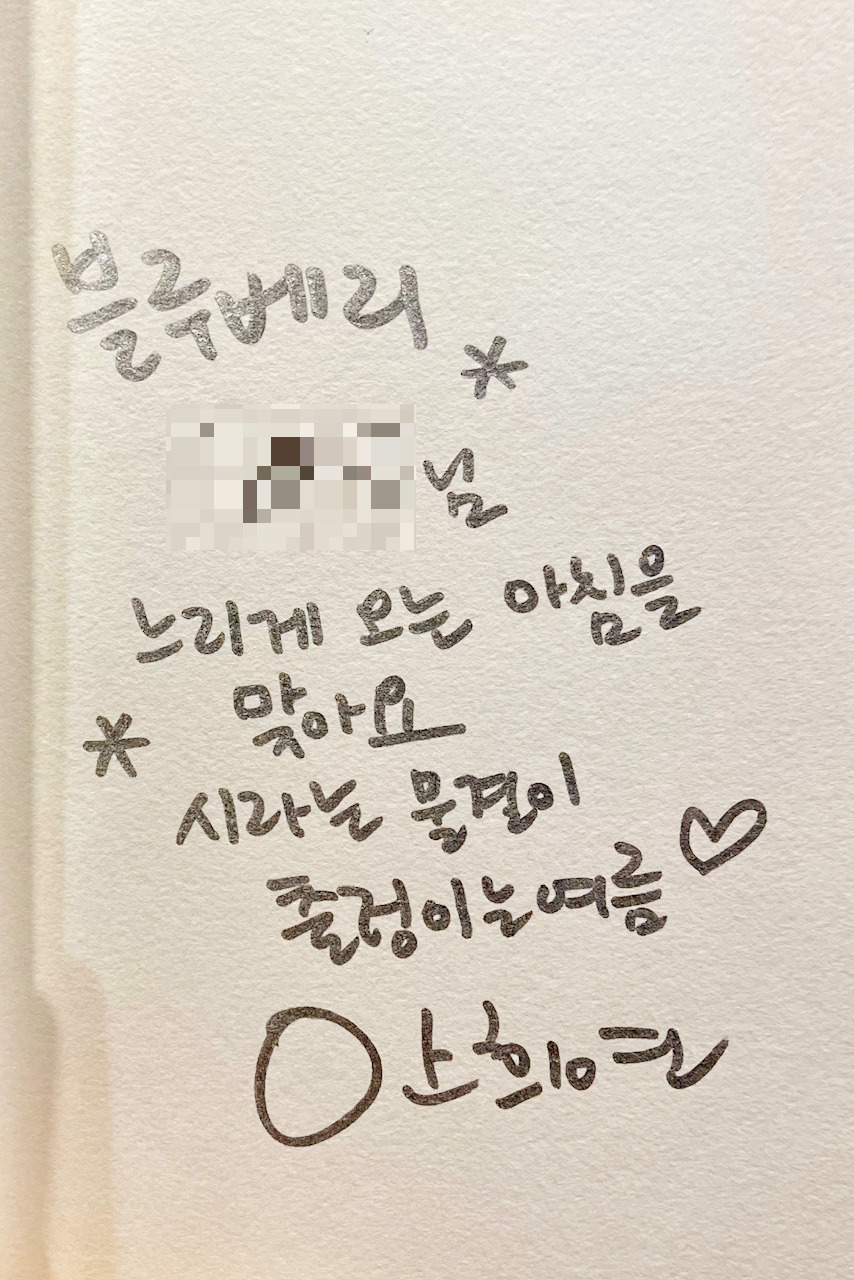 블루베리
님
느리게 오는 아침을
맞아요
시라는 물결이
출렁이는 여름
안희연